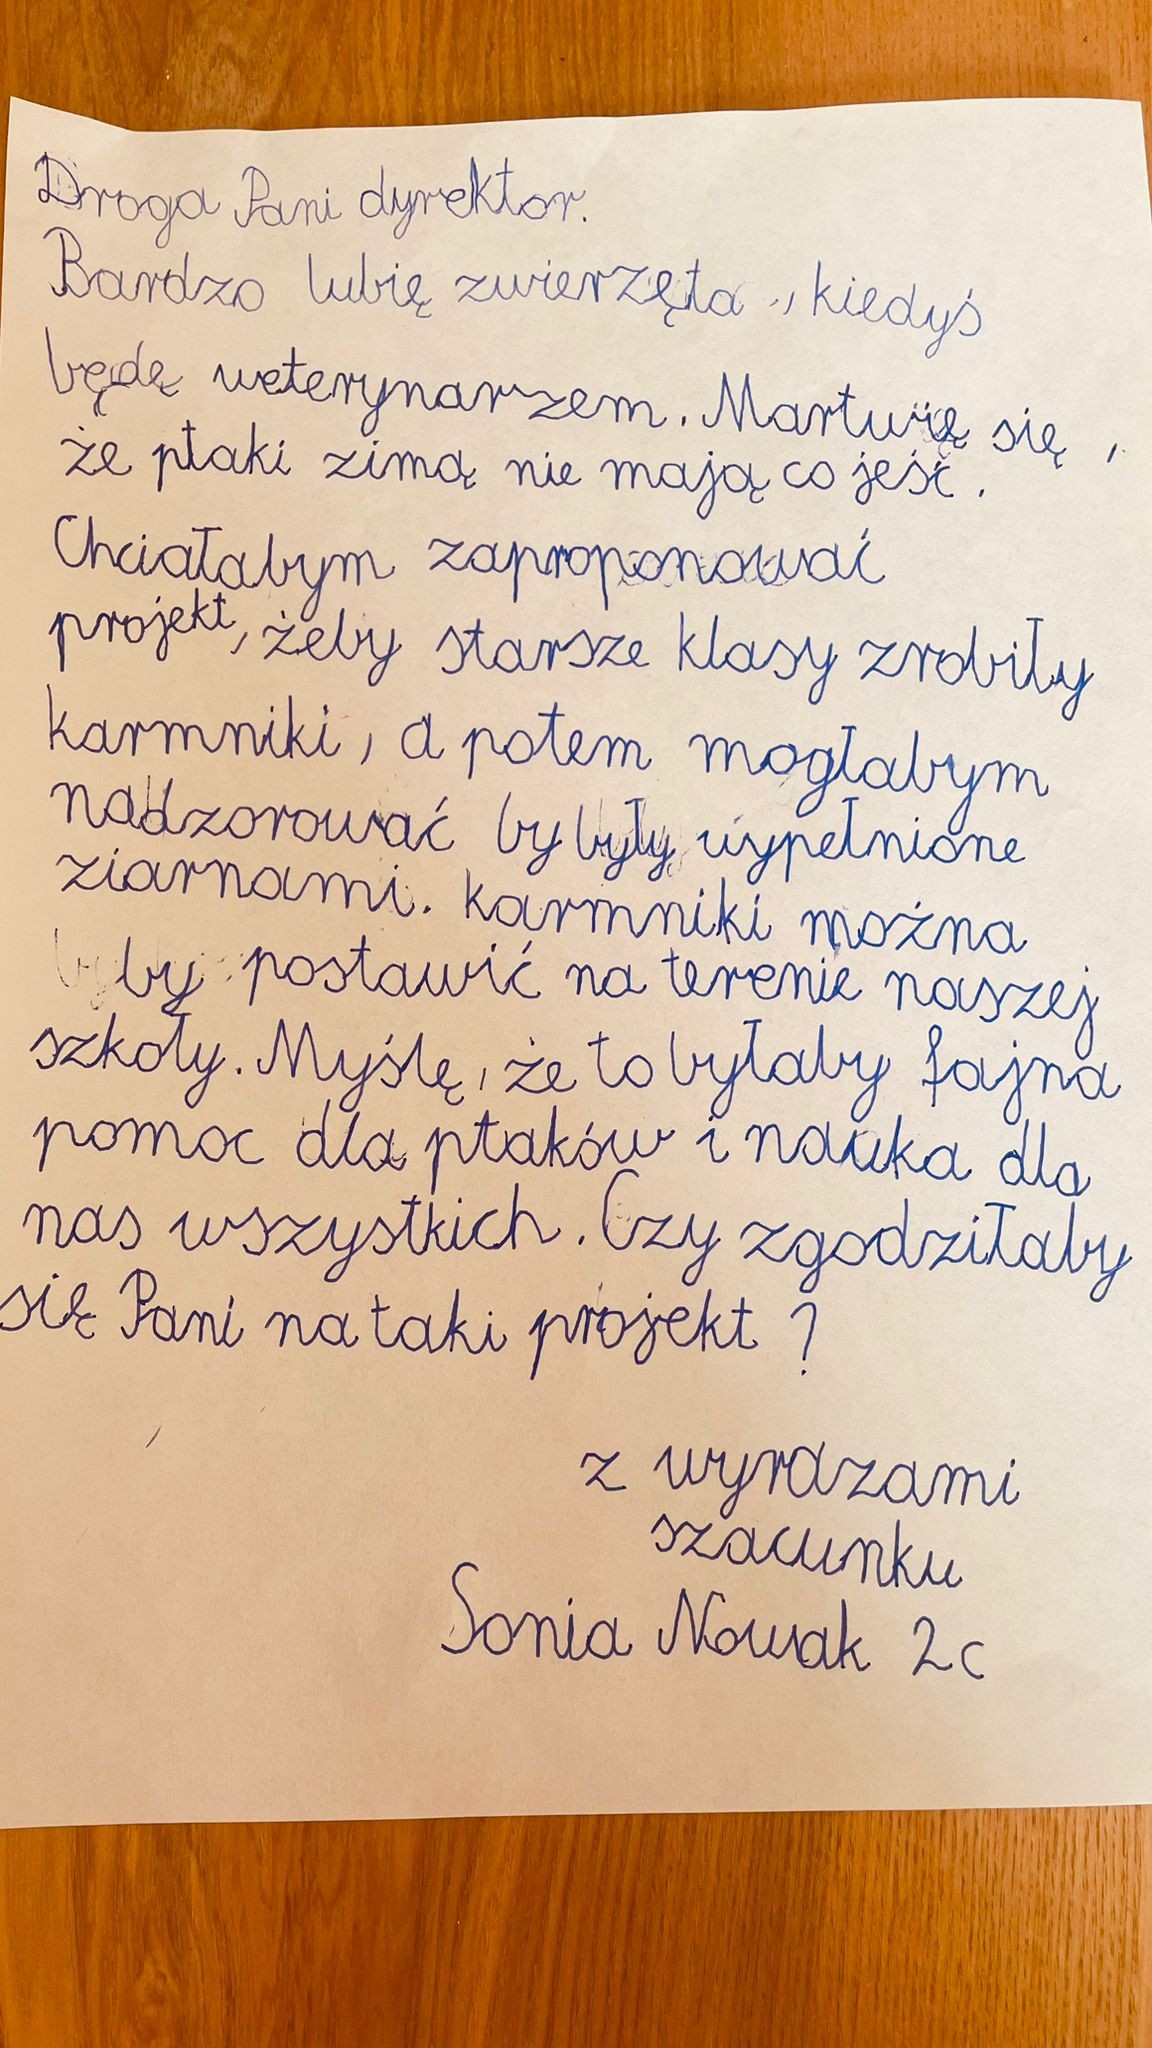 Droga Pani dyrektor.
Bardzo lubię zwierzęta, kiedyś
będę weterynarzem. Martwię się,
że ptaki zimą nie mają co jeść.
Chciałabym zaproponować
projekt, żeby starsze klasy zrobiły
karmniki, a potem mogłabym
nadzorować by były wypełnione
ziarnami. karmniki można
by postawić na terenie naszej
szkoły. Myślę, że to byłaby fajna
pomoc dla ptaków i nauka dla
nas wszystkich. Czy zgodziłaby
się Pani na taki projekt?
z wyrazami
szacunku
Sonia Nowak 2c